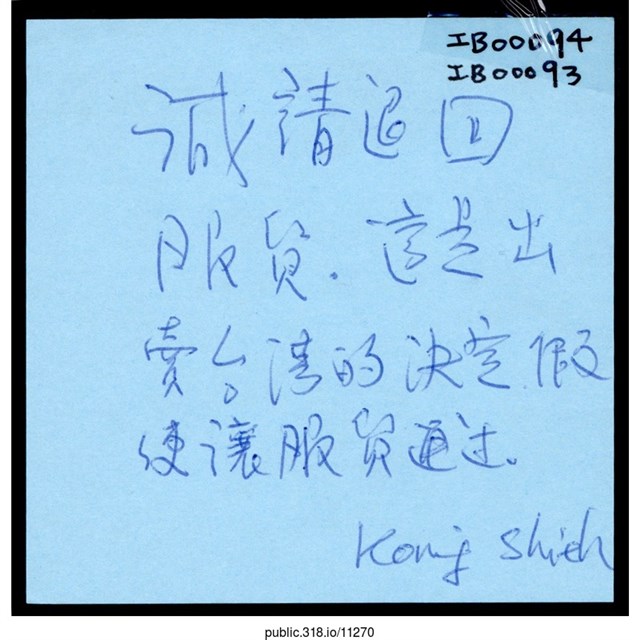 IB00094
IB00093
誠請退回
服貿.這是出
賣台湾的決定假
使讓服貿通过.
Shieh
public.318.io/11270